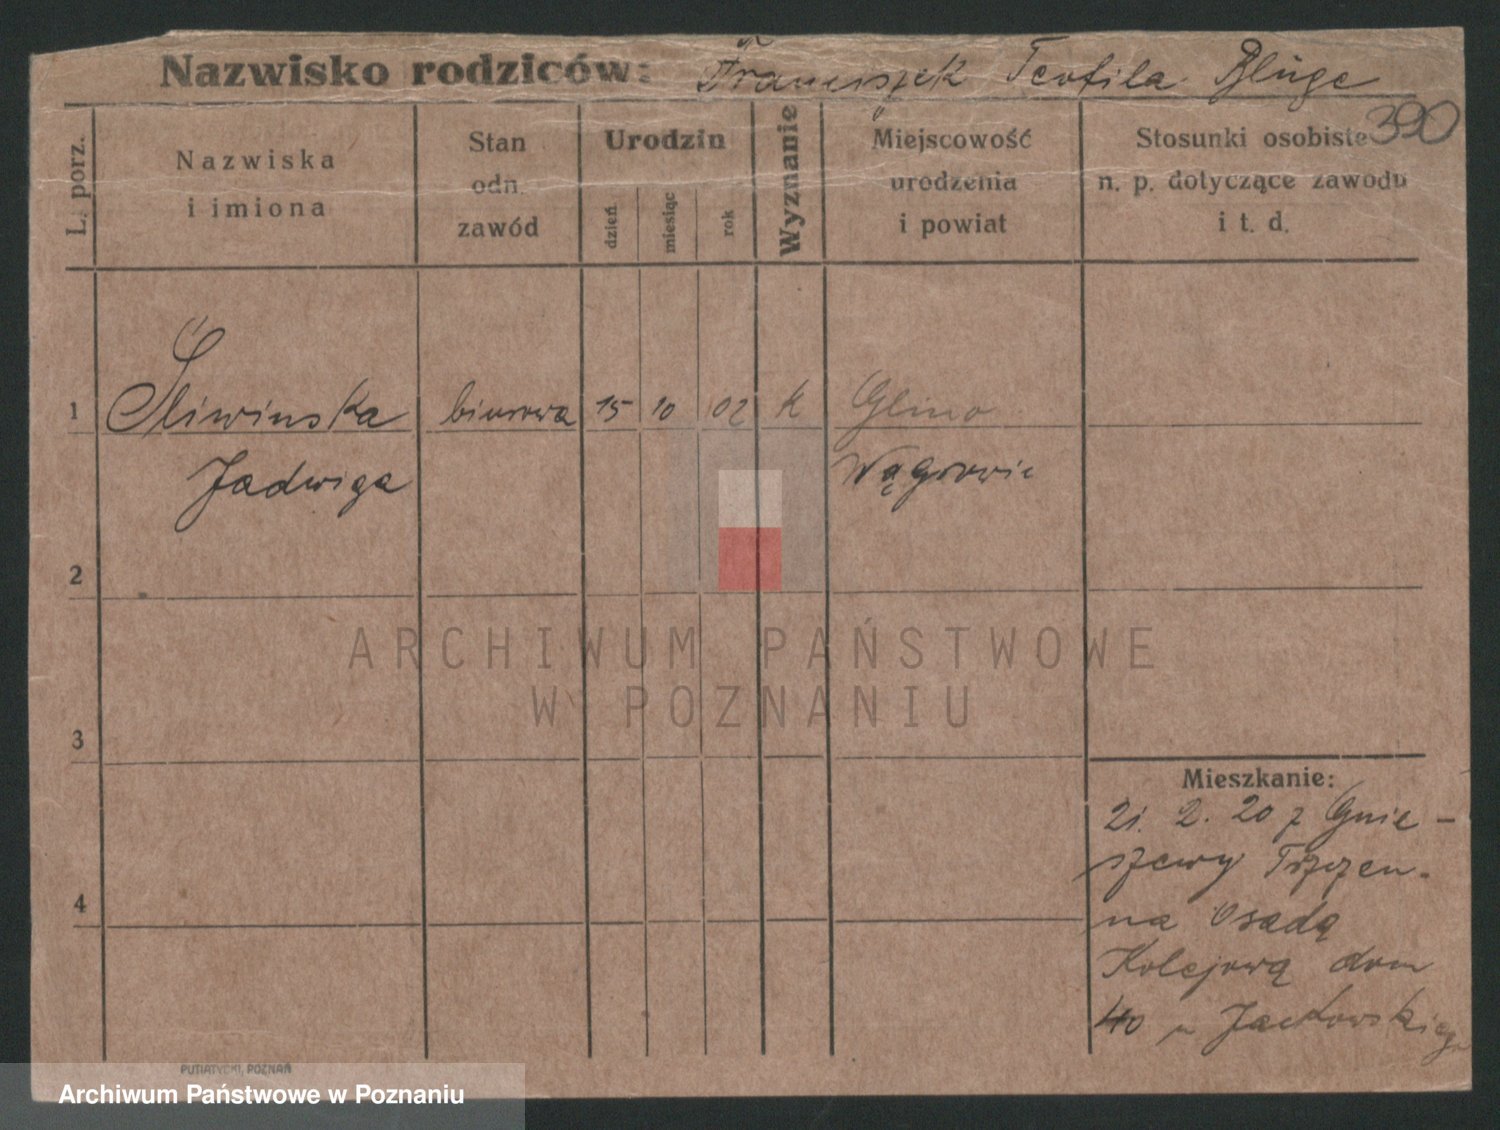 Nazwisko rodziców: Franciszek Teofila Blüge
390
L. porz.
Nazwiska
i imiona
Stan
odn.
zawód
Urodzin
dzień
miesiąc
rok
Wyznanie
Miejscowość
urodzenia
i powiat
Stosunki osobiste
n. p. dotyczące zawodu
i t. d.
1 Śliwinska biurowa 15 10 02 k Glino
Jadwiga Wągrowic
2
3
4
Mieszkanie:
21. 2. 20 z Gnie-
szewy Trzczen-
na Osadą
Kolejową dom
40 u Jackowskiego
ARCHIWUM PAŃSTWOWE
W POZNANIU
PUTIATYCKI, POZNAŃ
Archiwum Państwowe w Poznaniu